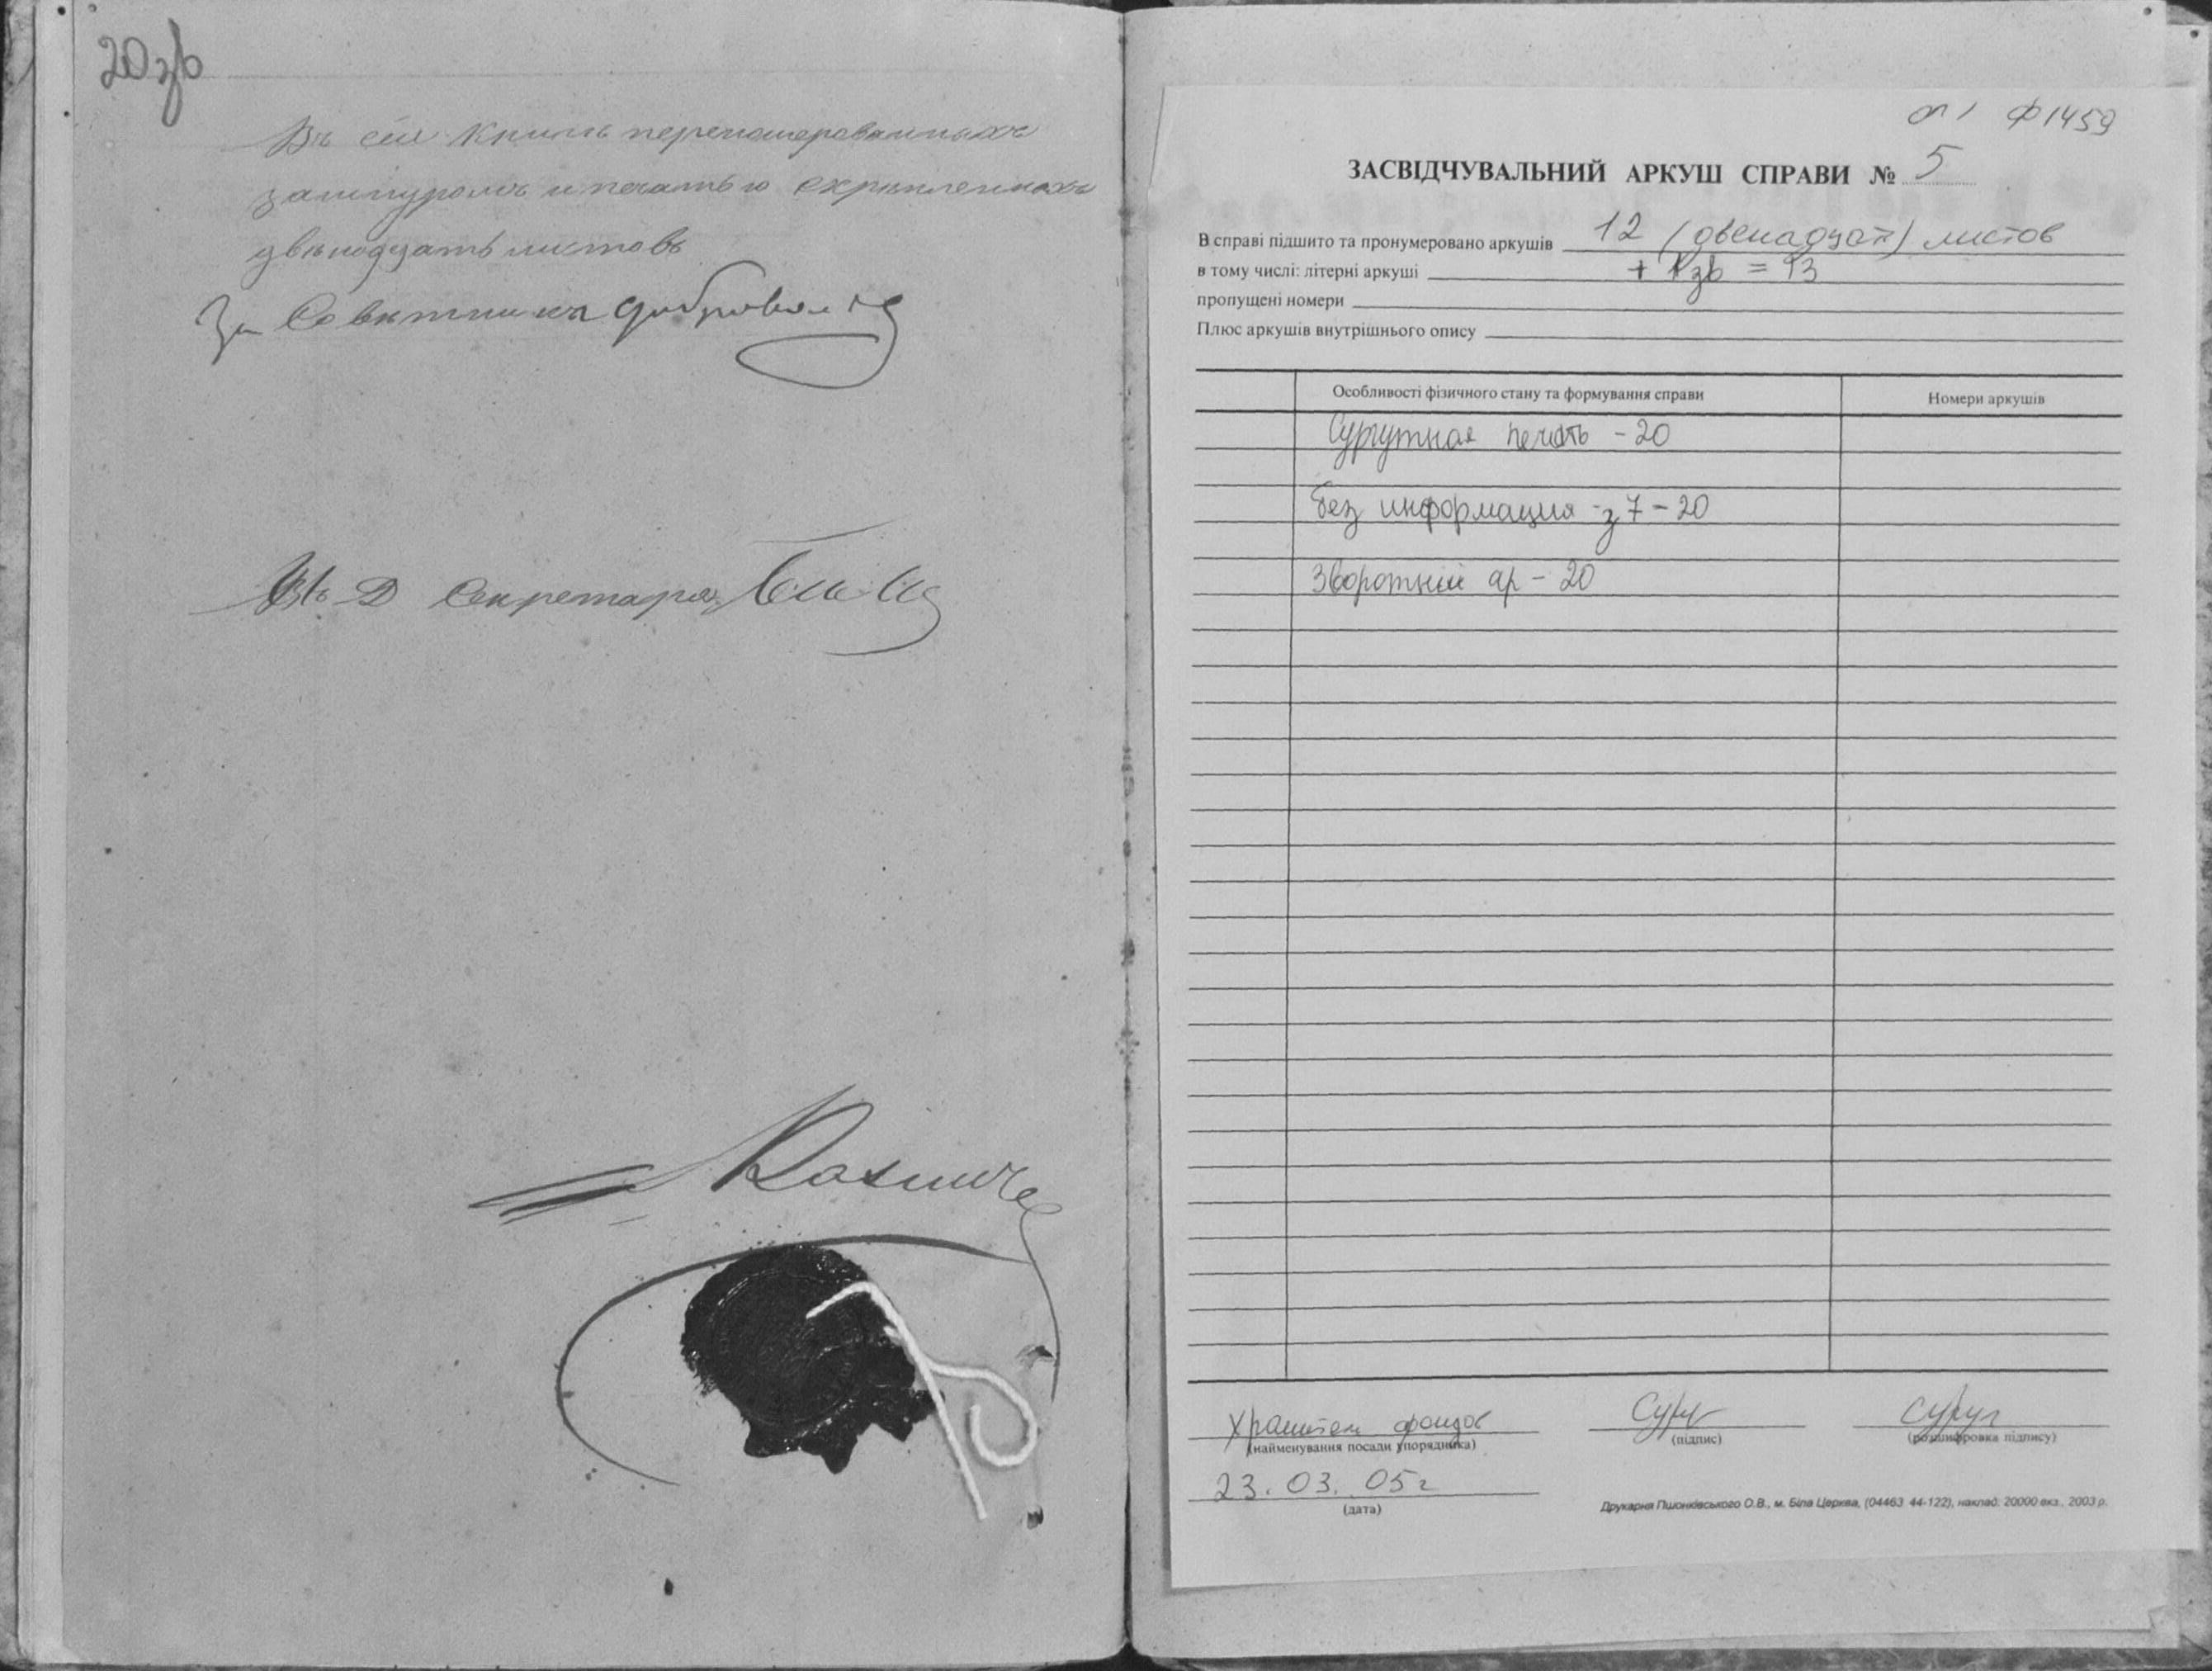 20зв
Въ сей Книгѣ перенумерованныхъ
зашнуромъ и печатью скрѣпленныхъ
двѣнадцать листовъ
За Совѣтника
Въ Д Секретаря
оп 1 ф 1459
ЗАСВІДЧУВАЛЬНИЙ АРКУШ СПРАВИ № 5
В справі підшито та пронумеровано аркушів 12 (двенадцат) листов
в тому числі: літерні аркуші + 1 зв = 13
пропущені номери
Плюс аркушів внутрішнього опису
Особливості фізичного стану та формування справи
Номери аркушів
Сургутная печать - 20
без информация - з 7 - 20
Зворотній ар - 20
Хранител фондов
(найменування посади упорядника)
(підпис)
(розшифровка підпису)
23. 03. 05 г
(дата)
Друкарня Пшонківського О.В., м. Біла Церква, (04463 44-122), наклад. 20000 екз., 2003 р.